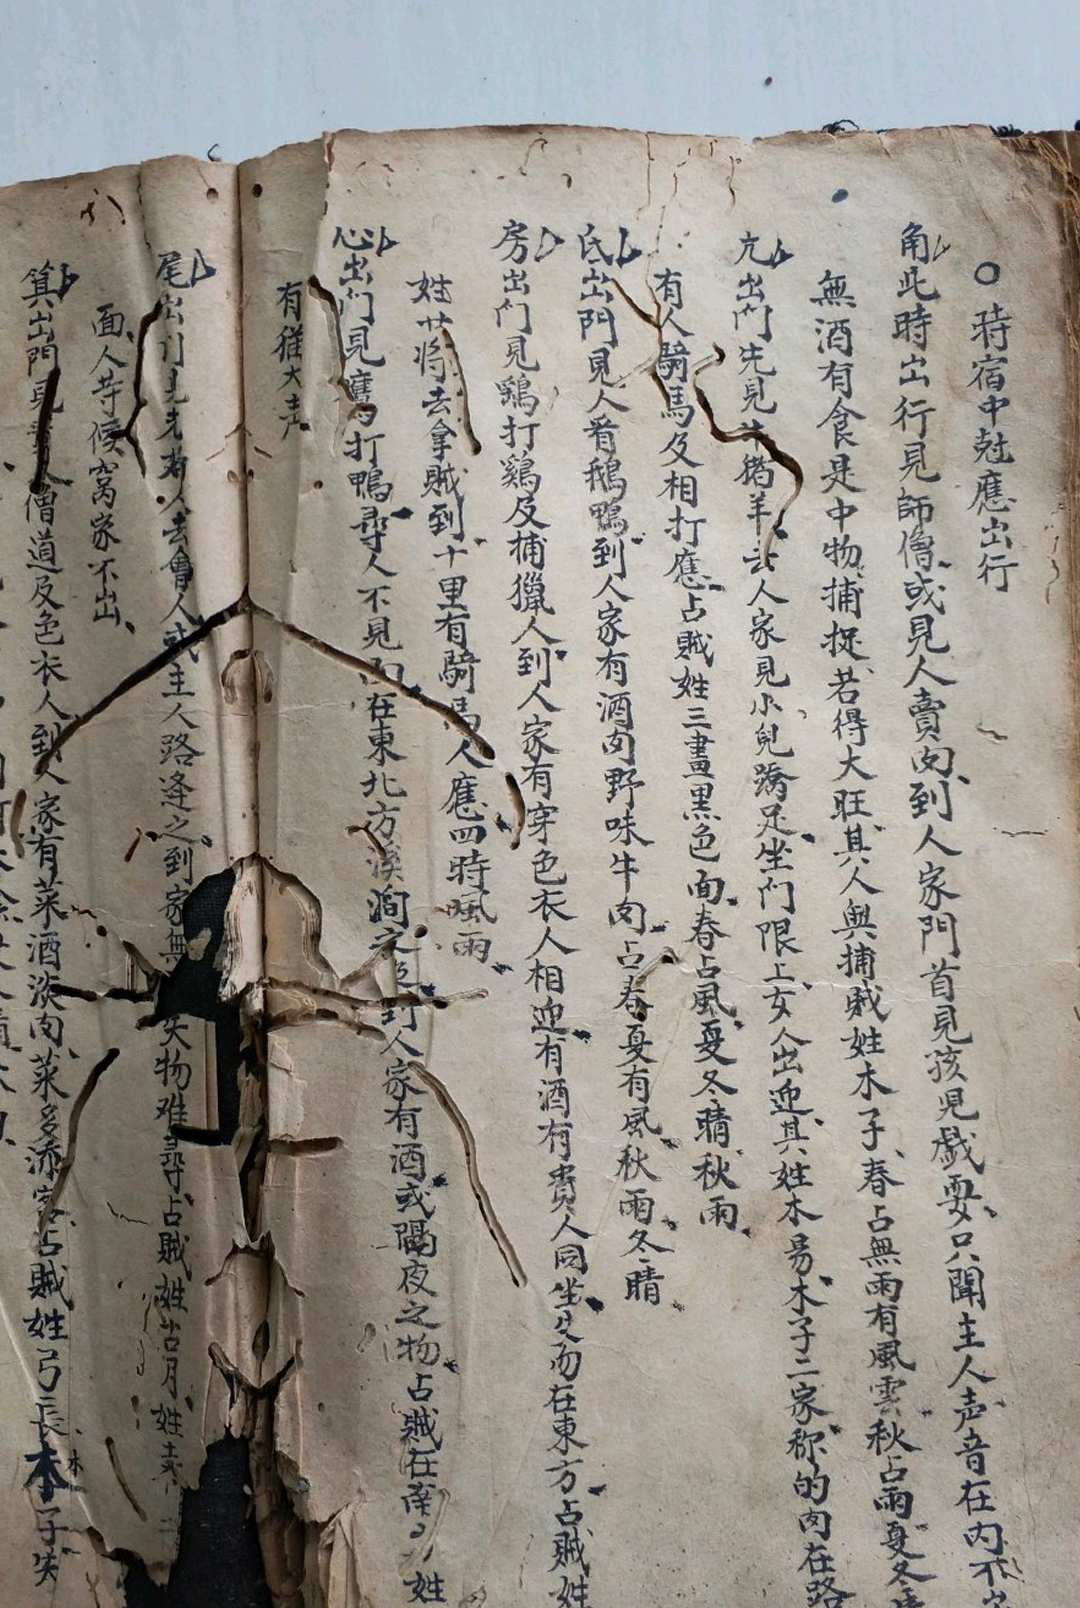 ○時宿中尅應出行
角此時出行見師僧或見人賣肉到人家門首見孩児戯耍只聞主人声音在内不出
無酒有食是中物捕捉若得大旺其人與捕贼姓木子春占無雨有風雲秋占雨夏冬
亢出門先見牛猪羊去人家見小兒蹺足坐門限上女人出迎其姓木易木子二家称的肉在路
有人騎馬及相打應占贼姓三畫黒色面春占風夏冬晴秋雨
氐出門見人看鵝鴨到人家有酒肉野味牛肉占春夏有風秋雨冬晴
房出門見鷄打鷄及捕獵人到人家有穿色衣人相迎有酒有貴人同坐失而在東方占贼姓
姓 将去拿贼到十里有騎馬人應四時風雨
心出門見鷹打鴨尋人不見肉在東北方溪澗之 到人家有酒或隔夜之物占贼在南 姓
有 大声
尾出門見 人去會人或主人路逢之到家無 失物难尋占贼姓古月姓
面人寺候窩家不出
箕出門見 僧道及色衣人到人家有菜酒淡肉菜多添客占贼姓弓長木子失